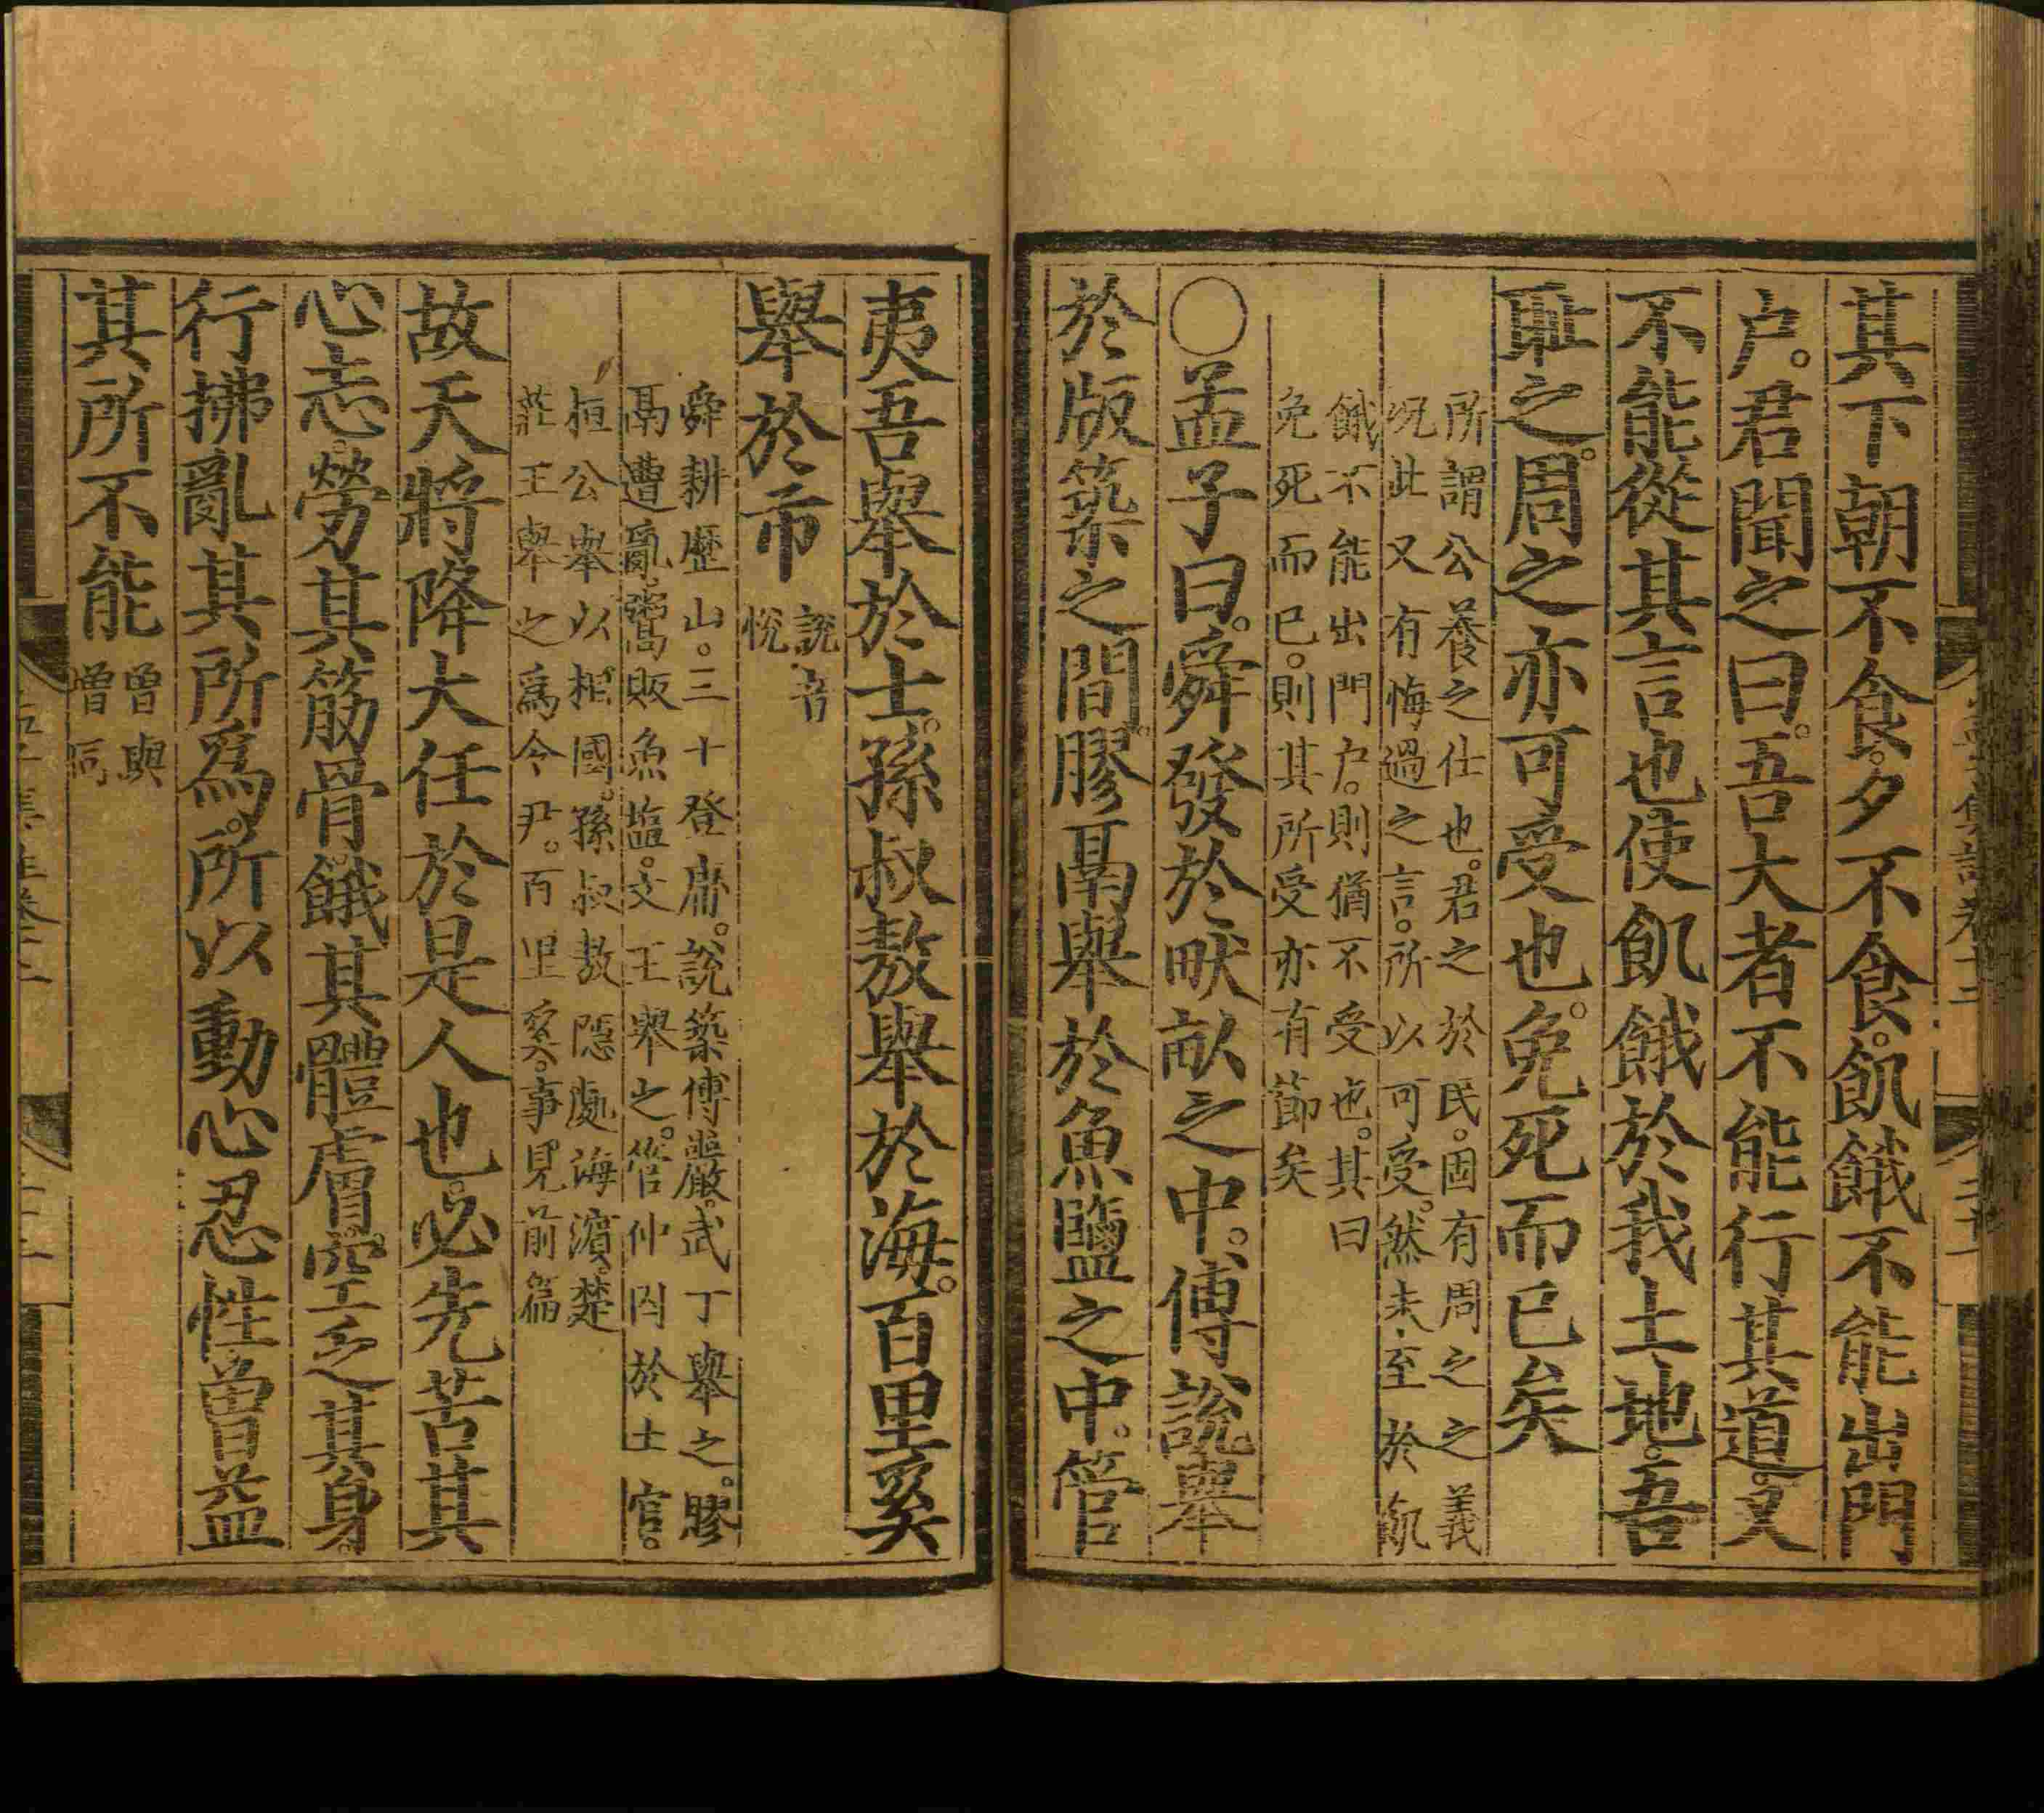 其下朝不食。夕不食。飢餓不能出門
户。君聞之曰。吾大者不能行其道。又
不能從其言也。使飢餓於我土地。吾
恥之。周之亦可受也。免死而已矣
所謂公養之仕也。君之於民。固有周之之義
况此又有悔過之言。所以可受。然未至於飢
餓不能出門户。則猶不受也。其曰
免死而已。則其所受亦有節矣
○孟子曰。舜發於畎畝之中。傅說舉
於版築之間。膠鬲舉於魚鹽之中。管
夷吾舉於士。孫叔敖舉於海。百里奚
舉於市
說音
悅
舜耕歷山。三十登庸。說築傅巖。武丁舉之。膠
鬲遭亂。鬻販魚塩。文王舉之。管仲囚於士官。
桓公舉以相國。孫叔敖隱處海濱。楚
莊王舉之為令尹。百里奚。事見前篇
故天將降大任於是人也。必先苦其
心志。勞其筋骨。餓其體膚。空乏其身。
行拂亂其所爲。所以動心忍性曾益
其所不能
曾與
增同